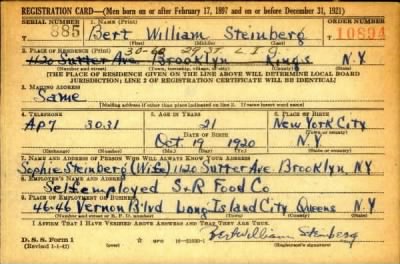 REGISTRATION CARD—(Men born on or after February 17, 1897 and on or before December 31, 1921)
SERIAL NUMBER 1. Name (Print) ORDER NUMBER
885 Bert William Steinberg 10894
(First) (Middle) (Last)
30-60 29 St. L I C
2. Place of Residence (Print)
1120 Sutter Ave Brooklyn Kings N.Y.
(Number and street) (Town, township, village, or city) (County) (State)
[THE PLACE OF RESIDENCE GIVEN ON THE LINE ABOVE WILL DETERMINE LOCAL BOARD
JURISDICTION; LINE 2 OF REGISTRATION CERTIFICATE WILL BE IDENTICAL]
3. Mailing Address
Same
[Mailing address if other than place indicated on line 2. If same insert word same]
4. Telephone 5. Age in Years 6. Place of Birth
21 New York City
Ap7 3031 Date of Birth
Oct. 19 1920 N.Y.
(Exchange) (Number) (Mo.) (Day) (Yr.) (State or country)
7. Name and Address of Person Who Will Always Know Your Address
Sophie Steinberg (Wife) 1120 Sutter Ave. Brooklyn, N.Y
8. Employer's Name and Address
Self employed S+R Food Co
9. Place of Employment or Business
46-46 Vernon Blvd Long Island City Queens N.Y
(Number and street or R. F. D. number) (Town) (County) (State)
I Affirm That I Have Verified Above Answers and That They Are True.
D. S. S. Form 1
(Revised 1-1-42) GPO Bert William Steinberg
(Registrant's signature)